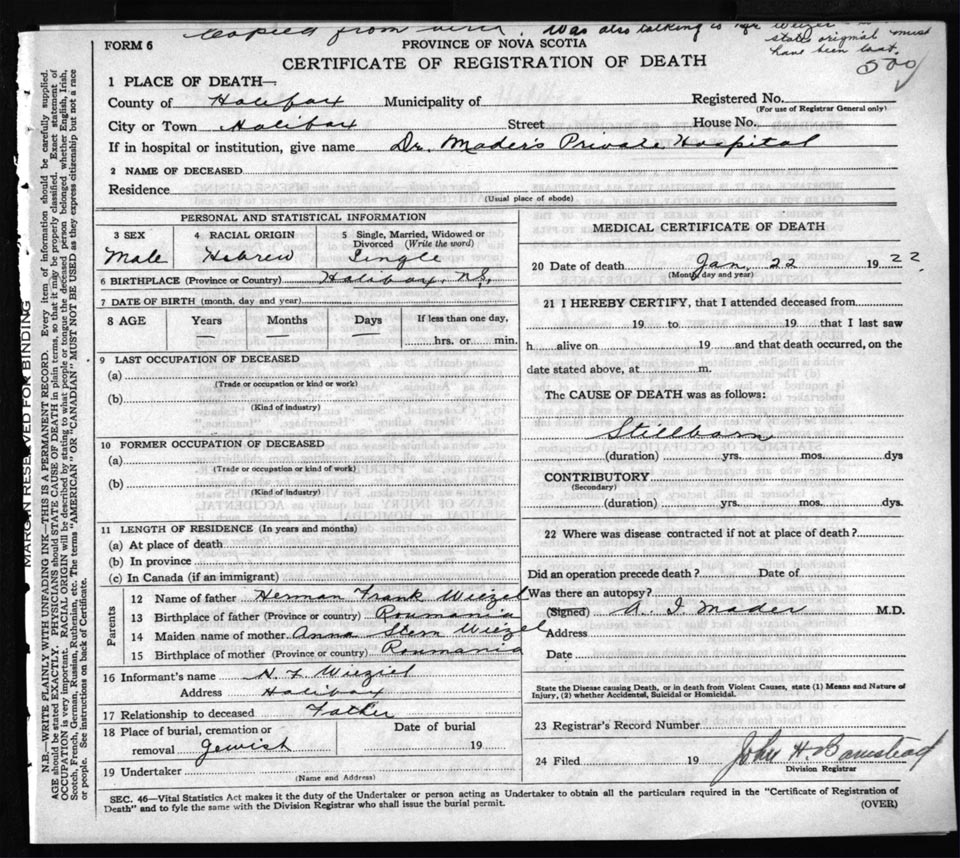 Copied from . Was also talking to
states original must
have been lost.
500
FORM 6
PROVINCE OF NOVA SCOTIA
CERTIFICATE OF REGISTRATION OF DEATH
1 PLACE OF DEATH—
County of Halifax Municipality of Registered No.
(For use of Registrar General only)
City or Town Halifax Street House No.
If in hospital or institution, give name Dr. Mader's Private Hospital
2 NAME OF DECEASED
Residence
(Usual place of abode)
PERSONAL AND STATISTICAL INFORMATION
3 SEX 4 RACIAL ORIGIN 5 Single, Married, Widowed or Divorced (Write the word)
Male Hebrew Single
6 BIRTHPLACE (Province or Country) Halifax, N.S.
7 DATE OF BIRTH (month, day and year)
8 AGE Years Months Days If less than one day,
hrs. or min.
9 LAST OCCUPATION OF DECEASED
(a)
(Trade or occupation or kind or work)
(b)
(Kind of industry)
10 FORMER OCCUPATION OF DECEASED
(a)
(Trade or occupation or kind of work)
(b)
(Kind of industry)
11 LENGTH OF RESIDENCE (In years and months)
(a) At place of death
(b) In province
(c) In Canada (if an immigrant)
Parents
12 Name of father Herman Frank Wiezel
13 Birthplace of father (Province or country) Roumania
14 Maiden name of mother Anna Stern Wiezel
15 Birthplace of mother (Province or country) Roumania
16 Informant's name H. F. Wieziel
Address Halifax
17 Relationship to deceased Father
18 Place of burial, cremation or Date of burial
removal Jewish 19
19 Undertaker
(Name and Address)
MEDICAL CERTIFICATE OF DEATH
20 Date of death Jan. 22 1922.
(Month, day and year)
21 I HEREBY CERTIFY, that I attended deceased from
19 to 19 that I last saw
h alive on 19 and that death occurred, on the
date stated above, at m.
The CAUSE OF DEATH was as follows:
Stillborn
(duration) yrs. mos. dys
CONTRIBUTORY
(Secondary)
(duration) yrs. mos. dys.
22 Where was disease contracted if not at place of death?
Did an operation precede death? Date of
Was there an autopsy?
(Signed) A. I. Mader M.D.
Address
Date
State the Disease causing Death, or in death from Violent Causes, state (1) Means and Nature of
Injury, (2) whether Accidental, Suicidal or Homicidal.
23 Registrar's Record Number
24 Filed 19 John H. Barnstead
Division Registrar
SEC. 46—Vital Statistics Act makes it the duty of the Undertaker or person acting as Undertaker to obtain all the particulars required in the "Certificate of Registration of
Death" and to fyle the same with the Division Registrar who shall issue the burial permit.
(OVER)
MARGIN RESERVED FOR BINDING
N.B.—WRITE PLAINLY WITH UNFADING INK—THIS IS A PERMANENT RECORD. Every item of information should be carefully supplied.
AGE should be stated EXACTLY. PHYSICIANS should STATE CAUSE OF DEATH in plain terms, so that it may be properly classified. Exact statement of
OCCUPATION is very important. RACIAL ORIGIN will be described by stating to what people or tongue the deceased person belonged whether English, Irish,
Scotch, French, German, Russian, Ruthenian, etc. The terms "AMERICAN" OR "CANADIAN" MUST NOT BE USED as they express citizenship but not a race
or people. See instructions on back of Certificate.